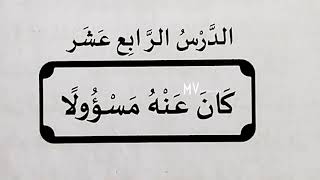 الدَّرْسُ الرَّابِع عَشَر
كَانَ عَنْهُ مَسْؤُولًا
MV